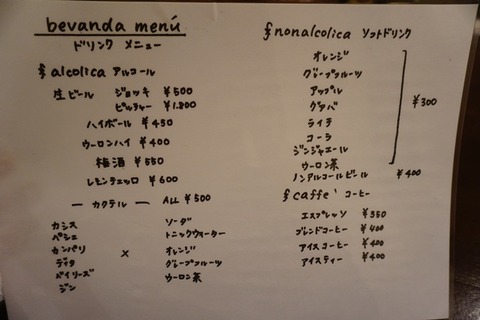 bevanda menú
ドリンク メニュー
§ alcolica アルコール
生ビール ジョッキ ¥500
ピッチャー ¥1.800
ハイボール ¥450
ウーロンハイ ¥400
梅酒 ¥550
レモンチェッロ ¥600
ー カクテル ー ALL ¥500
カシス
ペシェ
カンパリ
ディタ
ベイリーズ
ジン
×
ソーダ
トニックウォーター
オレンジ
グレープフルーツ
ウーロン茶
§ nonalcolica ソフトドリンク
オレンジ
グレープフルーツ
アップル
グァバ
ライチ
コーラ
ジンジャエール
ウーロン茶
¥300
ノンアルコールビール ¥400
§ caffe' コーヒー
エスプレッソ ¥350
ブレンドコーヒー ¥400
アイスコーヒー ¥400
アイスティー ¥400